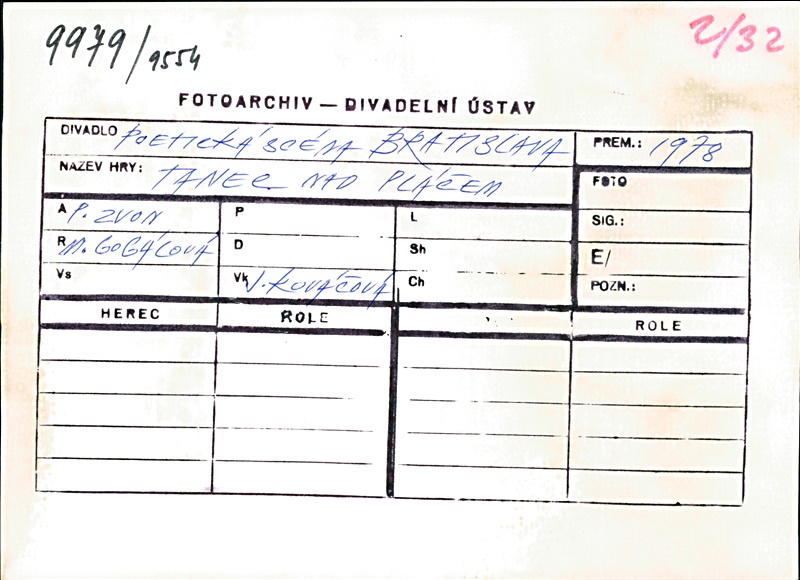 9979/9554
2/32
FOTOARCHIV — DIVADELNÍ ÚSTAV
DIVADLO POETICKÁ SCÉNA BRATISLAVA
PREM.: 1978
NAZEV HRY: TANEC NAD PLÁČEM
FOTO
A P. ZVON
P
L
SIG.:
R M. GOGÁLOVÁ
D
Sh
E/
Vs
Vk J. KOVÁČOVÁ
Ch
POZN.:
HEREC
ROLE
ROLE